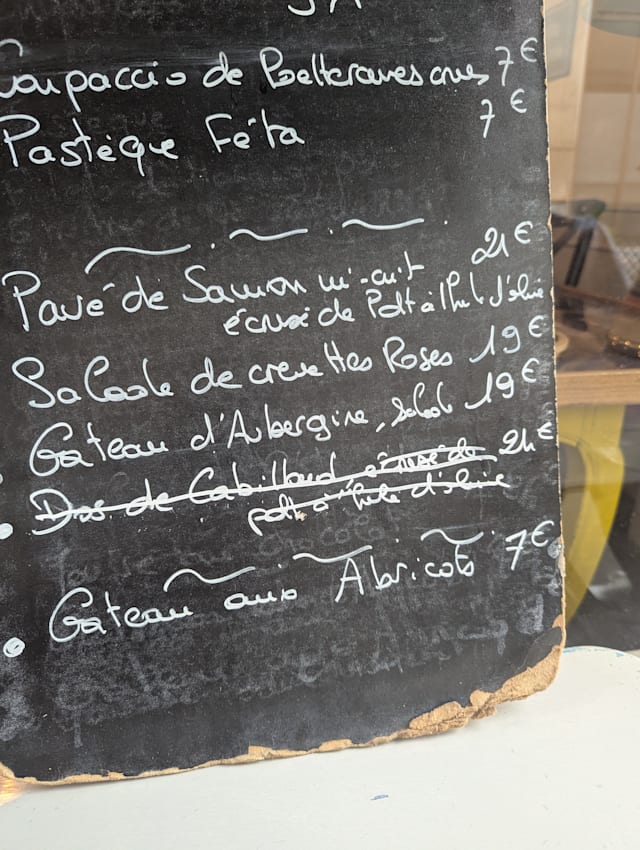 Carpaccio de Betteraves crues 7€
Pastèque Féta 7€
Pavé de Saumon mi-cuit 21€
écrasé de Pdt à l'huile d'olive
Salade de crevettes Roses 19€
Gâteau d'Aubergine, Salade 19€
Dos de Cabillaud écrasé de 21€
pdt à l'huile d'olive
Gâteau aux Abricots 7€